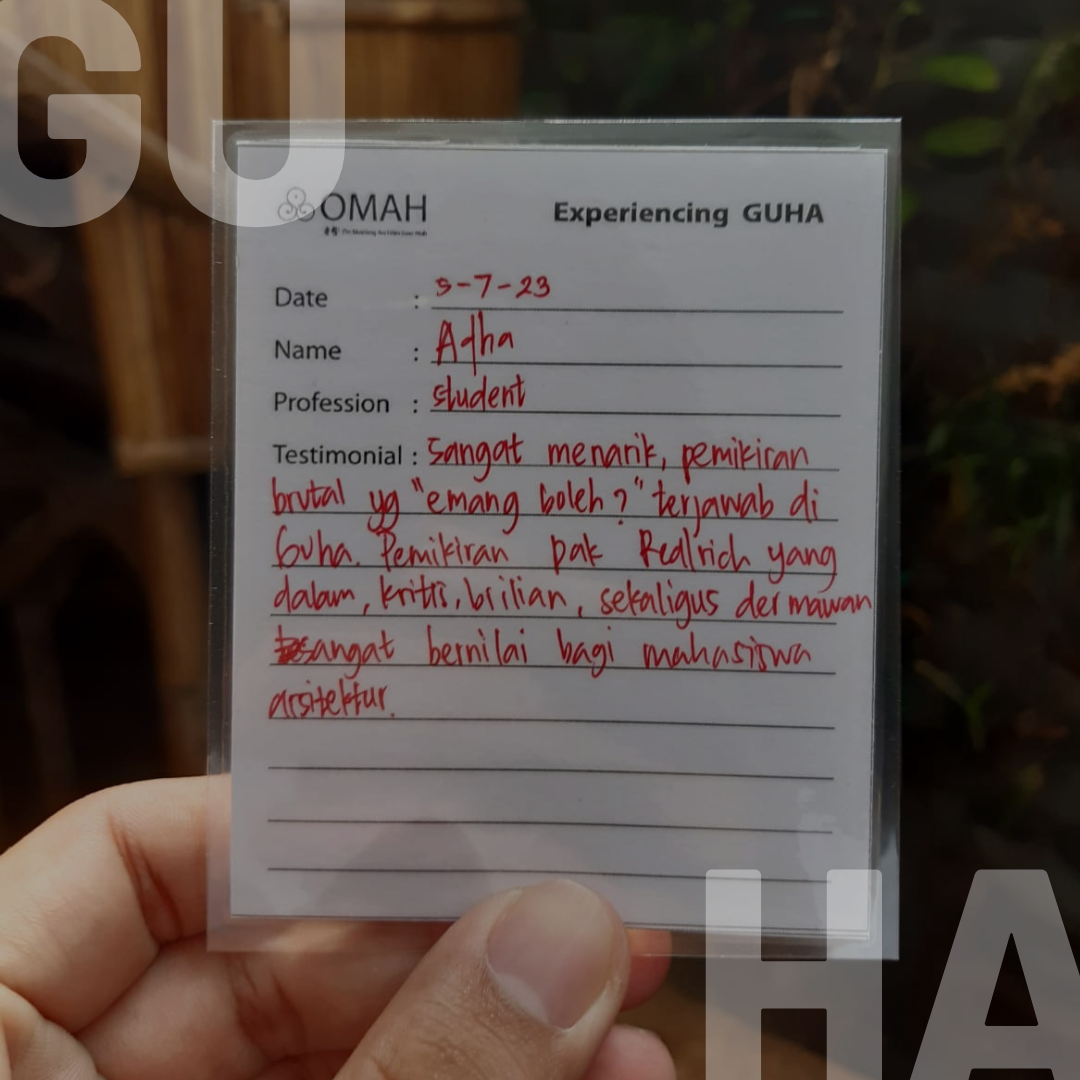 GU
OMAH
Experiencing GUHA
Date : 5-7-23
Name : Adha
Profession : student
Testimonial : Sangat menarik, pemikiran
brutal yg "emang boleh?" terjawab di
Guha. Pemikiran pak Realrich yang
dalam, kritis, brilian, sekaligus dermawan
sangat bernilai bagi mahasiswa
arsitektur.
HA